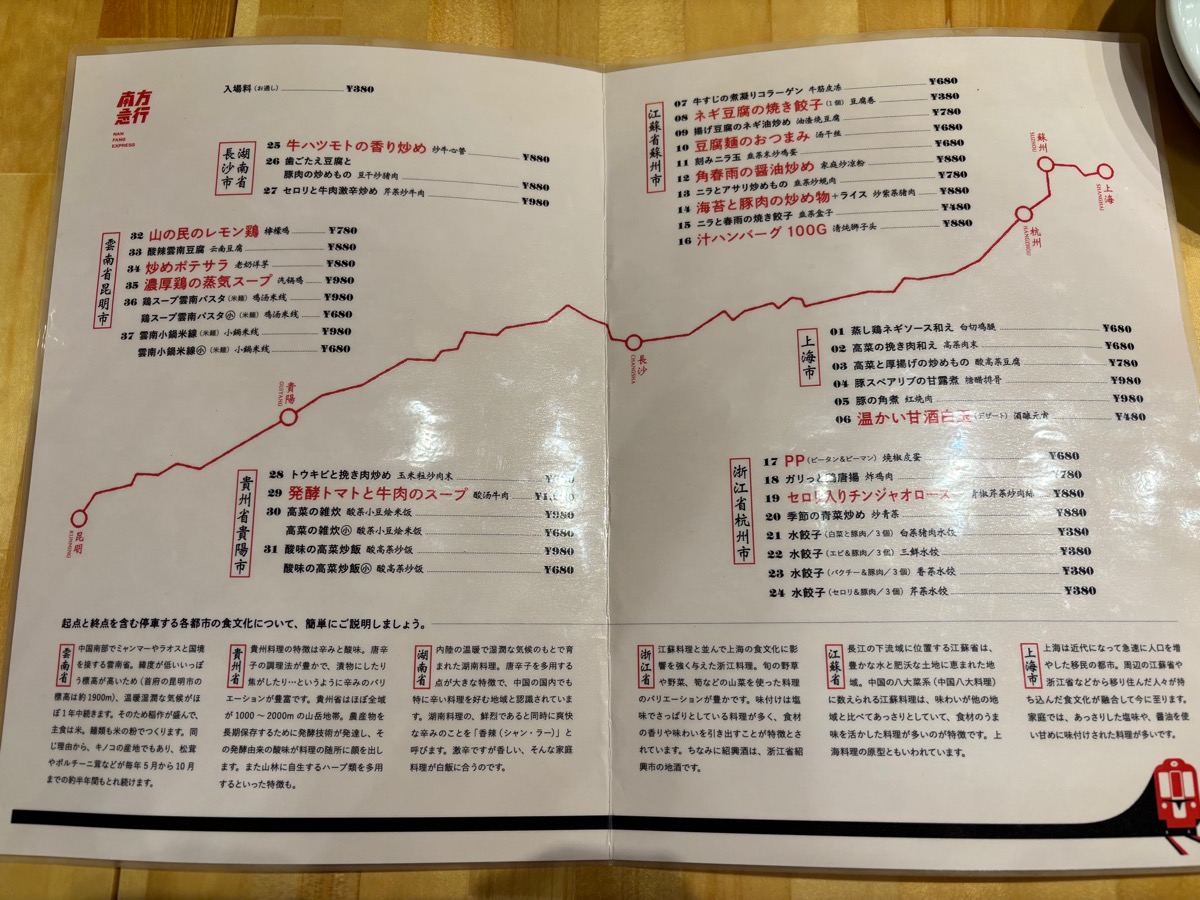 南方
急行
NAN
FANG
EXPRESS
入場料(お通し) ¥380
湖南省
長沙市
25 牛ハツモトの香り炒め 炒牛心管 ¥880
26 歯ごたえ豆腐と
豚肉の炒めもの 豆干炒猪肉 ¥880
27 セロリと牛肉激辛炒め 芹菜炒牛肉 ¥980
雲南省昆明市
32 山の民のレモン鶏 柠檬鸡 ¥780
33 酸辣雲南豆腐 云南豆腐 ¥880
34 炒めポテサラ 老奶洋芋 ¥880
35 濃厚鶏の蒸気スープ 汽锅鸡 ¥980
36 鶏スープ雲南パスタ(米麺) 鸡汤米线 ¥980
鶏スープ雲南パスタ㊙小(米麺) 鸡汤米线 ¥680
37 雲南小鍋米線(米麺) 小鍋米线 ¥980
雲南小鍋米線小(米麺) 小鍋米线 ¥680
貴州省貴陽市
28 トウキビと挽き肉炒め 玉米粒炒肉末
29 発酵トマトと牛肉のスープ 酸汤牛肉
30 高菜の雑炊 酸菜小豆烩米饭 ¥980
高菜の雑炊小 酸菜小豆烩米饭 ¥680
31 酸味の高菜炒飯 酸高菜炒饭 ¥980
酸味の高菜炒飯小 酸高菜炒饭 ¥680
江蘇省蘇州市
07 牛すじの煮凝りコラーゲン 牛筋皮冻 ¥680
08 ネギ豆腐の焼き餃子(1個) 豆腐卷 ¥380
09 揚げ豆腐のネギ油炒め 油渣烧豆腐 ¥780
10 豆腐麺のおつまみ 汤干丝 ¥680
11 刻みニラ玉 韭菜末炒鸡蛋 ¥680
12 角春雨の醤油炒め 家庭炒凉粉 ¥880
13 ニラとアサリ炒めもの 韭菜炒蚬肉 ¥780
14 海苔と豚肉の炒め物+ライス 炒紫菜猪肉 ¥880
15 ニラと春雨の焼き餃子 韭菜盒子 ¥480
16 汁ハンバーグ 100G 清炖狮子头 ¥880
上海市
01 蒸し鶏ネギソース和え 白切鸡腿 ¥680
02 高菜の挽き肉和え 高菜肉末 ¥680
03 高菜と厚揚げの炒めもの 酸高菜豆腐 ¥780
04 豚スペアリブの甘露煮 糖醋排骨 ¥980
05 豚の角煮 红烧肉 ¥980
06 温かい甘酒白玉(デザート) 酒酿元宵 ¥480
浙江省杭州市
17 PP(ピータン&ピーマン) 烧椒皮蛋 ¥680
18 ガリっと鶏唐揚 炸鸡肉 ¥780
19 セロリ入りチンジャオロース 青椒芹菜炒肉絲 ¥880
20 季節の青菜炒め 炒青菜 ¥880
21 水餃子(白菜と豚肉/3個) 白菜猪肉水饺 ¥380
22 水餃子(エビ&豚肉/3個) 三鲜水饺 ¥380
23 水餃子(パクチー&豚肉/3個) 香菜水饺 ¥380
24 水餃子(セロリ&豚肉/3個) 芹菜水饺 ¥380
昆明
KUNMING
貴陽
GUIYANG
長沙
CHANGSHA
杭州
HANGZHOU
蘇州
SUZHOU
上海
SHANGHAI
起点と終点を含む停車する各都市の食文化について、簡単にご説明しましょう。
雲南省
中国南部でミャンマーやラオスと国境
を接する雲南省。緯度が低いいっぽ
う標高が高いため(首府の昆明市の
標高は約1900m)、温暖湿潤な気候がほ
ぼ1年中続きます。そのため稲作が盛んで、
主食は米。麺類も米の粉でつくります。同
じ理由から、キノコの産地でもあり、松茸
やポルチーニ茸などが毎年5月から10月
までの約半年間もとれ続けます。
貴州省
貴州料理の特徴は辛みと酸味。唐辛
子の調理法が豊かで、漬物にしたり
焦がしたり…というように辛みのバリ
エーションが豊富です。貴州省はほぼ全域
が1000～2000mの山岳地帯。農産物を
長期保存するために発酵技術が発達し、そ
の発酵由来の酸味が料理の随所に顔を出し
ます。また山林に自生するハーブ類を多用
するといった特徴も。
湖南省
内陸の温暖で湿潤な気候のもとで育
まれた湖南料理。唐辛子を多用する
点が大きな特徴で、中国の国内でも
特に辛い料理を好む地域と認識されていま
す。湖南料理の、鮮烈であると同時に爽快
な辛みのことを「香辣(シャン・ラー)」と
呼びます。激辛ですが香しい、そんな家庭
料理が白飯に合うのです。
浙江省
江蘇料理と並んで上海の食文化に影
響を強く与えた浙江料理。旬の野草
や野菜、筍などの山菜を使った料理
のバリエーションが豊かです。味付けは塩
味でさっぱりとしている料理が多く、食材
の香りや味わいを引き出すことが特徴とさ
れています。ちなみに紹興酒は、浙江省紹
興市の地酒です。
江蘇省
長江の下流域に位置する江蘇省は、
豊かな水と肥沃な土地に恵まれた地
域。中国の八大菜系(中国八大料理)
に数えられる江蘇料理は、味わいが他の地
域と比べてあっさりとしていて、食材のうま
味を活かした料理が多いのが特徴です。上
海料理の原型ともいわれています。
上海市
上海は近代になって急速に人口を増
やした移民の都市。周辺の江蘇省や
浙江省などから移り住んだ人々が持
ち込んだ食文化が融合して今に至ります。
家庭では、あっさりした塩味や、醤油を使
い甘めに味付けされた料理が多いです。